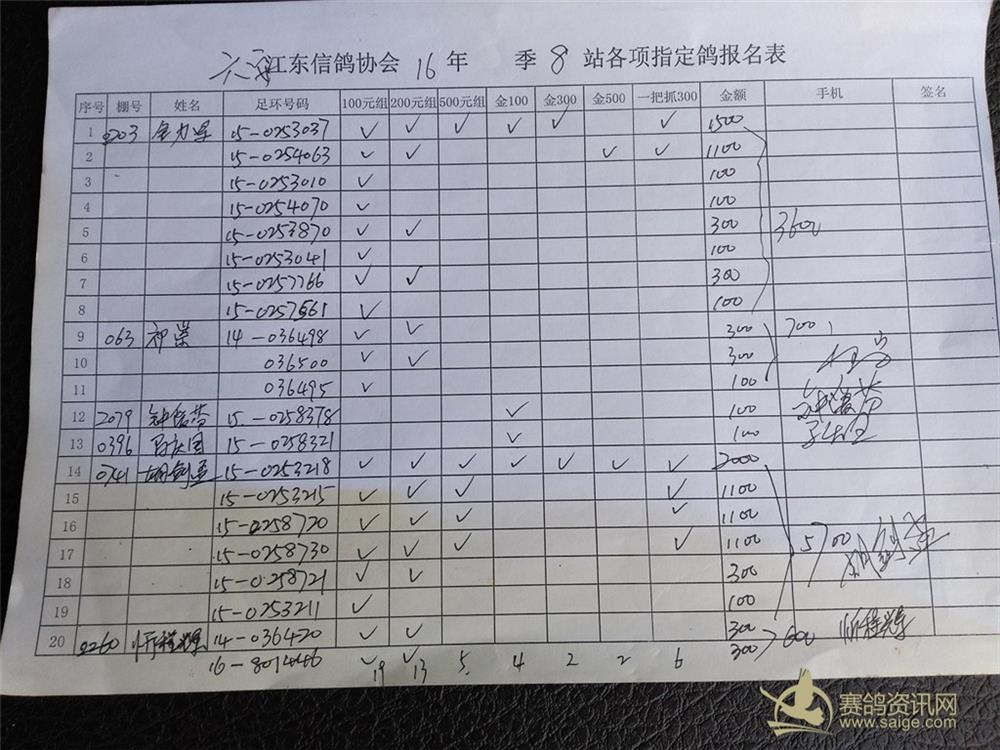 江东信鸽协会 16年 季 8 站各项指定鸽报名表
序号 棚号 姓名 足环号码 100元组 200元组 500元组 金100 金300 金500 一把抓300 金额 手机 签名
1 0203 15-0253037 ✓ ✓ ✓ ✓ ✓ ✓ 1500
2 15-0254063 ✓ ✓ ✓ ✓ 1100
3 15-0253010 ✓ 100
4 15-0254070 ✓ 100
5 15-0253870 ✓ ✓ 300 3600
6 15-0253041 ✓ 100
7 15-0257766 ✓ ✓ 300
8 15-0257561 ✓ 100
9 063 14-036498 ✓ ✓ 300 700
10 036500 ✓ ✓ 300
11 036495 ✓ 100
12 2079 钟信芬 15-0258378 ✓ 100
13 0396 15-0258321 ✓ 100
14 0741 胡剑孟 15-0253218 ✓ ✓ ✓ ✓ ✓ ✓ ✓ 2000
15 15-0253215 ✓ ✓ ✓ ✓ 1100
16 15-0258720 ✓ ✓ ✓ ✓ 1100
17 15-0258730 ✓ ✓ ✓ ✓ 1100 5700
18 15-0258721 ✓ ✓ 300
19 15-0253211 ✓ 100
20 2260 忻程辉 14-036420 ✓ ✓ 300 600 忻程辉
16-801446 ✓ ✓ 300
19 13 5 4 2 2 6
赛鸽资讯网
www.saige.com